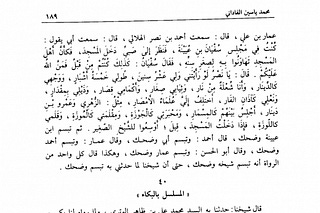 محمد ياسين الفاداني
١٨٩
عمار بن علي ، قال : سمعت أحمد بن نصر الهلالي ، قال : سمعت أبي يقول :
كُنْتُ فِي مَجْلِسِ سُفْيَانَ بْنِ عُيَيْنَةَ ، فَنَظَرَ إِلَىٰ صَبِيٍّ دَخَلَ الْمَسْجِدَ ، فَكَأَنَّ أَهْلَ
الْمَسْجِدِ تَهَاوَنُوا بِهِ لِصِغَرِ سِنِّهِ ، فَقَالَ سُفْيَانُ : كَذَٰلِكَ كُنْتُمْ مِنْ قَبْلُ فَمَنَّ اللَّهُ
عَلَيْكُمْ . قَالَ : يَا نَصْرُ لَوْ رَأَيْتَنِي وَلِيَ عَشْرُ سِنِينَ ، طُولِي خَمْسَةُ أَشْبَارٍ ، وَوَجْهِي
كَالدِّينَارِ ، وَأَنَا شُعْلَةُ مِنْ نَارٍ ، ثِيَابِي صِغَارٌ ، وَأَكْمَامِي قِصَارٌ ، وَذَيْلِي بِمِقْدَارٍ ،
وَنَعْلِي كَآذَانِ الْفَارِ ، أَخْتَلِفُ إِلَىٰ عُلَمَاءِ الْأَمْصَارِ ، مِثْلَ : الزُّهْرِي وَعَمْرِو بْنِ
دِينَارٍ ، أَجْلِسُ بَيْنَهُمْ كَالْمِسْمَارِ ، وَمَحْبَرَتِي كَالْجَوْزَةِ ، وَمِقْلَمَتِي كَالْمَوْزَةِ ، وَقَلَمِي
كَاللَّوْزَةِ ، فَإِذَا دَخَلْتُ الْمَسْجِدَ ، قِيلَ : أَوْسِعُوا لِلشَّيْخِ الصَّغِيرِ . ثم تبسم ابن
عيينة وضحك ، قال أحمد : وتبسم أبي وضحك ، وقال عمار : وتبسم أحمد
وضحك ، وقال أبو الحسن : وتبسم عمار وضحك ، وهكذا قال كل واحد من
الرواة أنه تبسم شيخه وضحك ، حتى أن شيخنا لما حدثني به تبسم وضحك .
٤٠
( المسلسل بالبكاء )
قال شيخنا : حدثنا به السيد محمد علي بن ظاهر